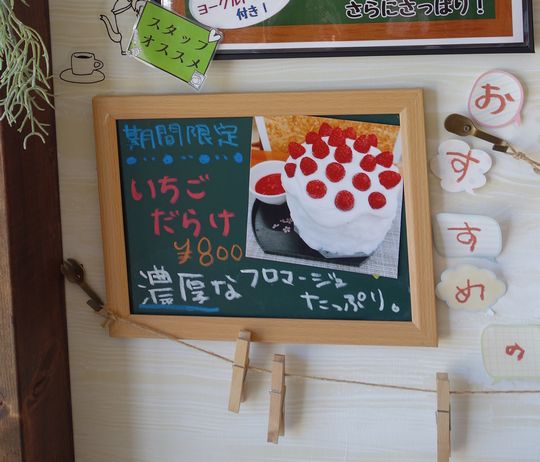 ヨーグルト
付き！
さらにさっぱり！
スタッフ
オススメ
期間限定
いちご
だらけ
¥800
濃厚なフロマージュ
たっぷり。
おすすめの